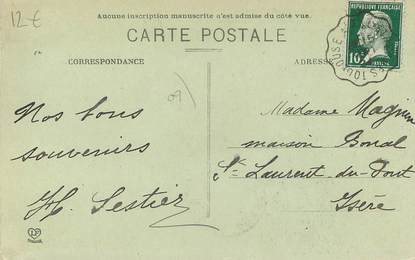 12-€
Aucune inscription manuscrite n'est admise du côté vue.
CARTE POSTALE
CORRESPONDANCE
ADRESSE
REPUBLIQUE FRANÇAISE
10c
TOULOUSE
Nos bons
souvenirs
H. Sestier
Madame Magnin
maison Bonal
St Laurent-du-Pont
Isère